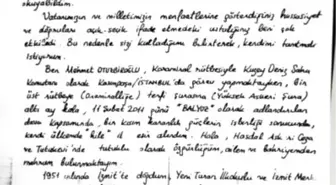 okuyabildim.
Vatanımızın ve milletimizin menfaatlerine gösterdiğiniz hassasiyet
ve doğruları açık-seçik ifade etmedeki ustalığınız beni çok
etkiledi. Bu nedenle sizi kutladığımı belirterek, kendimi tanıtmak
istiyorum.
Ben Mehmet OTUZBİROĞLU, Koramiral rütbesiyle Kuzey Deniz Saha
Komutanı olarak Kasımpaşa/İSTANBUL'da görev yapmaktayken, bir
üst rütbeye (Oramiralliğe) terfi sırasına (Yüksek Askeri Şura)
altı ay kala, 11 Şubat 2011 günü "BALYOZ" olarak adlandırılan
dava kapsamında, bir kısım karanlık güçlerin isterliği sonucunda,
kendi ülkemde "köle" esir alındım. Hala, Hasdal Askeri Ceza
ve Tutukevi'nde tutuklu olarak özgürlüğüme, ailem ve bahriyemden
mahrum bulunmaktayım.
1951 yılında İzmit'te doğdum. Yeni Turan İlkokulu ve İzmit